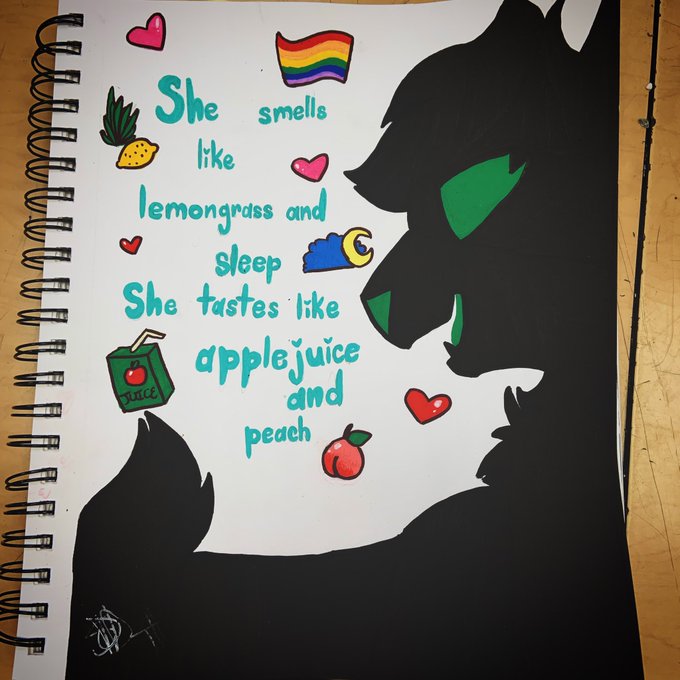 She smells
like
lemongrass and
sleep
She tastes like
applejuice
and
peach
JUICE